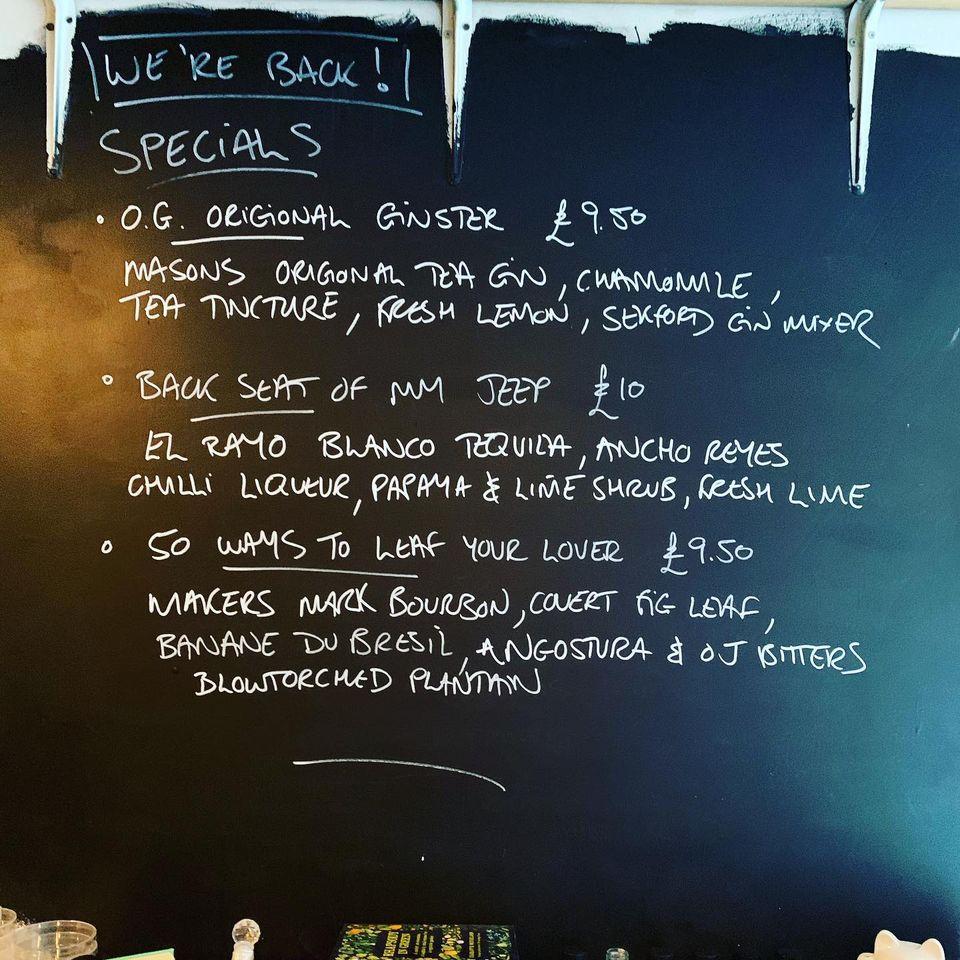 WE'RE BACK!
SPECIALS
• O.G. ORIGIONAL GINSTER £9.50
MASONS ORIGONAL TEA GIN, CHAMOMILE,
TEA TINCTURE, FRESH LEMON, SEKFORD GIN MIXER
• BACK SEAT OF MY JEEP £10
EL RAYO BLANCO TEQUILA, ANCHO REYES
CHILLI LIQUEUR, PAPAYA & LIME SHRUB, FRESH LIME
• 50 WAYS TO LEAF YOUR LOVER £9.50
MAKERS MARK BOURBON, COVERT FIG LEAF,
BANANE DU BRESIL, ANGOSTURA & OJ BITTERS
BLOWTORCHED PLANTAIN